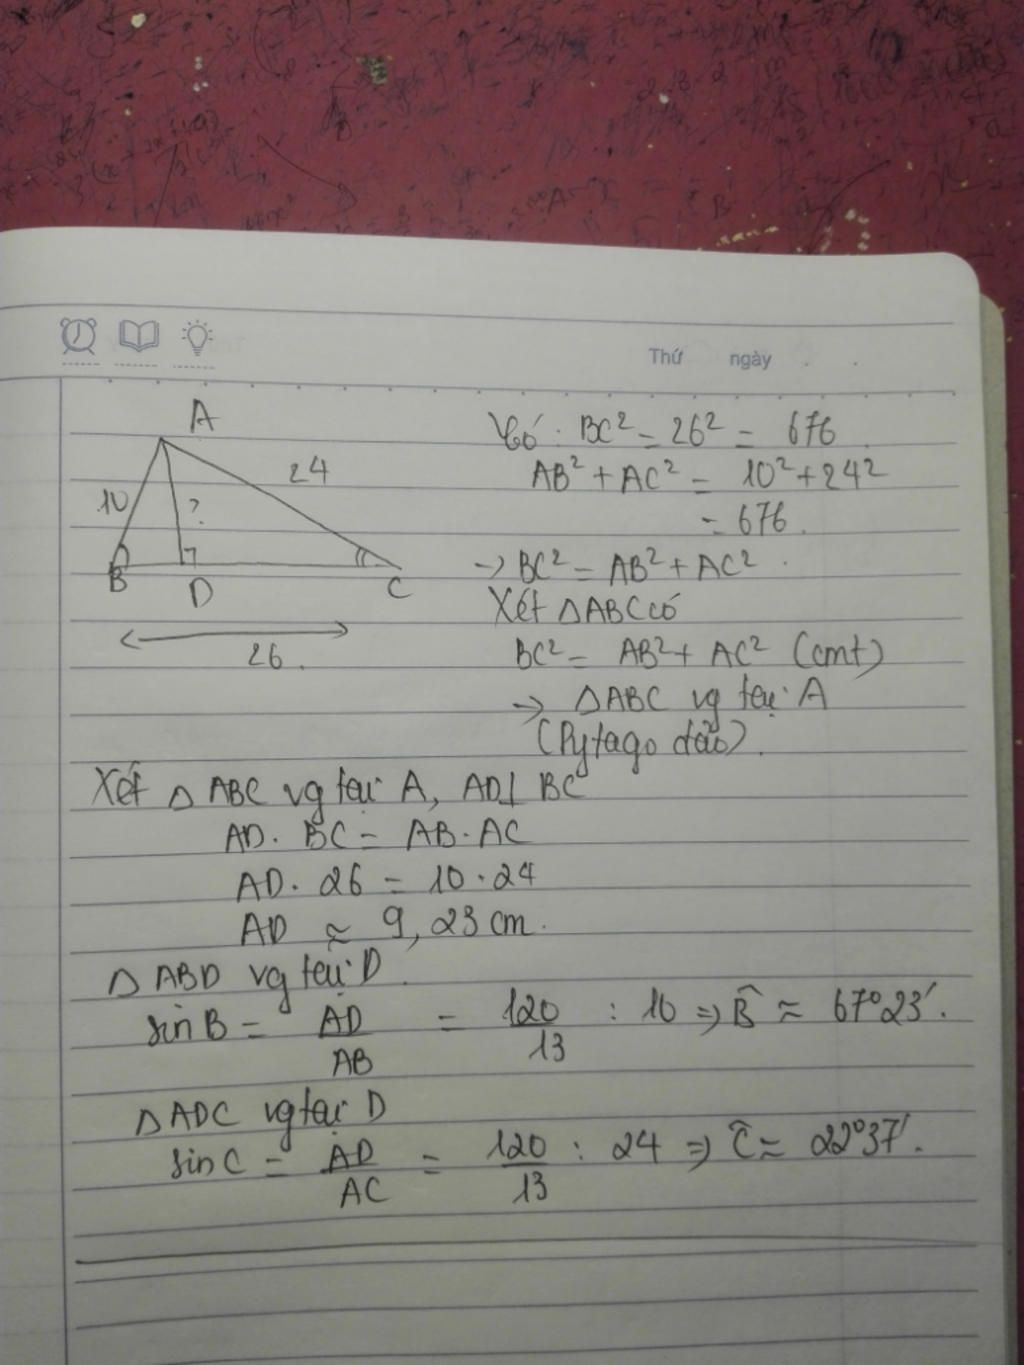 Thứ ngày
A
10
24
?
B
D
C
26.
Có: BC² = 26² = 676.
AB² + AC² = 10² + 24²
= 676.
→ BC² = AB² + AC².
Xét △ABC có
BC² = AB² + AC² (cmt)
→ △ABC vg tại A
(Pytago đảo).
Xét △ ABC vg tại A, AD⊥ BC
AD. BC = AB. AC
AD. 26 = 10. 24
AD ≈ 9,23 cm.
△ ABD vg tại D.
sin B = AD/AB = 120/13 : 10 ⇒ B̂ ≈ 67°23'.
△ADC vg tại D
sin C = AD/AC = 120/13 : 24 ⇒ Ĉ ≈ 22°37'.